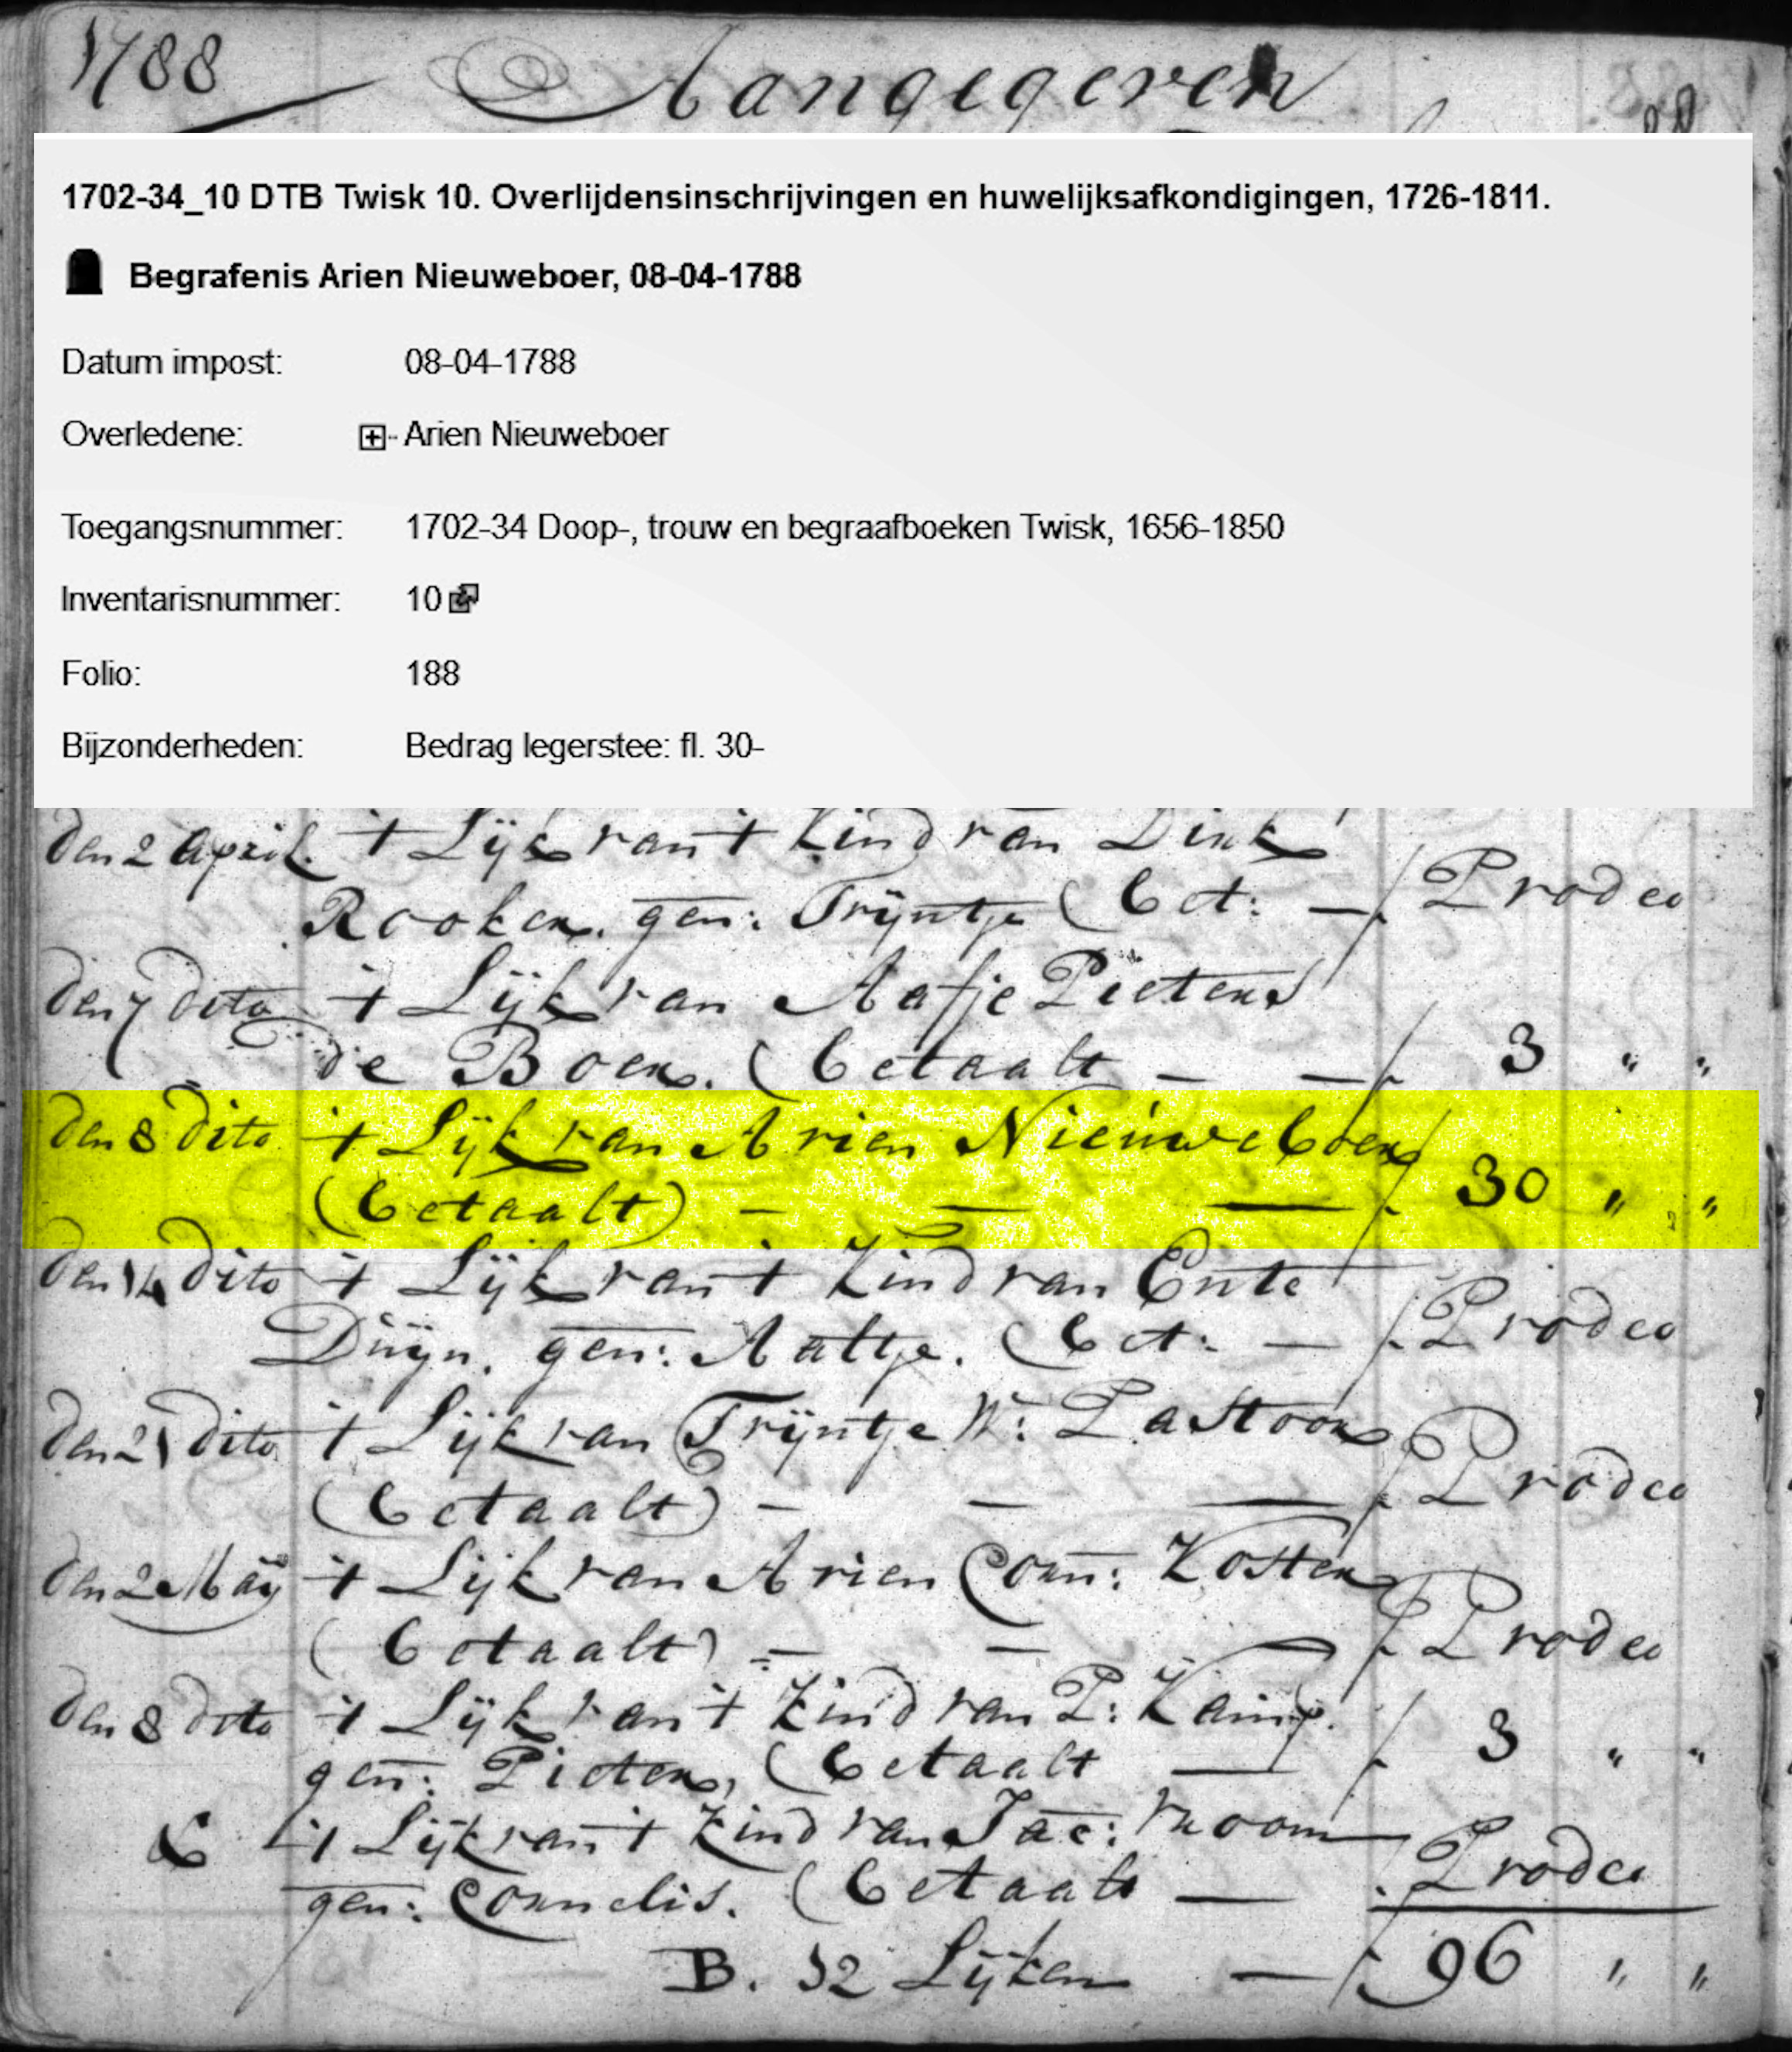 1788 Aangegeven
1702-34_10 DTB Twisk 10. Overlijdensinschrijvingen en huwelijksafkondigingen, 1726-1811.
Begrafenis Arien Nieuweboer, 08-04-1788
Datum impost: 08-04-1788
Overledene: Arien Nieuweboer
Toegangsnummer: 1702-34 Doop-, trouw en begraafboeken Twisk, 1656-1850
Inventarisnummer: 10
Folio: 188
Bijzonderheden: Bedrag legerstee: fl. 30-
den 2 april. 't Lijk van 't Kind van Dirk
Rooker. gen: Trijntje (bet: — f Prodeo
den 7 dito 't Lijk van Aafje Pieters
de Boer. (betaalt — — f 3 " "
den 8 dito 't Lijk van Arien Nieuweboer
(betaalt) — — — f 30 " "
den 14 dito 't Lijk van 't Kind van Ente
Duijn. gen: Aaltje. (bet: — f Prodeo
den 21 dito 't Lijk van Trijntje W: Pastoor
(betaalt) — — — f Prodeo
den 2 Maij 't Lijk van Arien Corn: Koster
(betaalt) — — — f Prodeo
den 8 dito 't Lijk van 't Kind van P: Kamp.
gen: Pieter, (betaalt — f 3 " "
& 't Lijk van 't Kind van Jac: Moom
gen: Cornelis. (betaalt — f Prodeo
B. 32 Lijken — f 96 " "